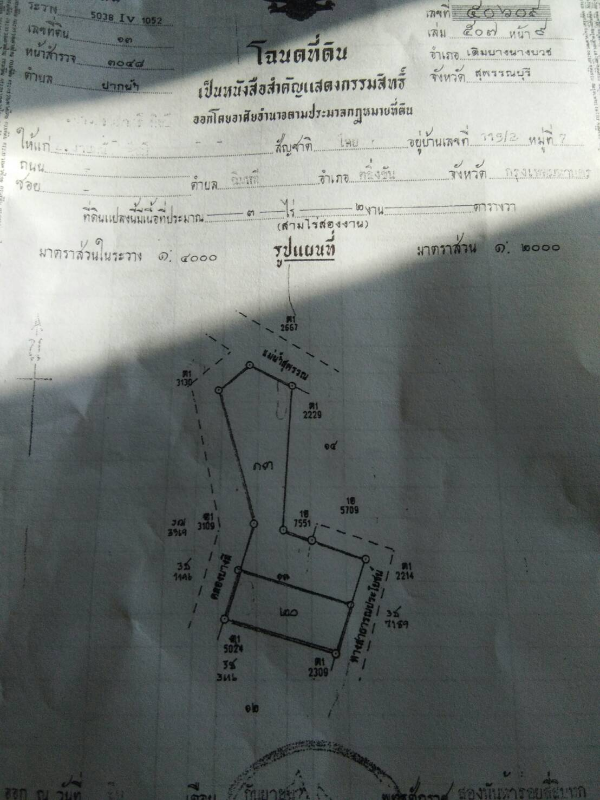 ระวาง 5038 IV 1052
เลขที่ดิน ๑๓
หน้าสำรวจ ๓๐๔๘
ตำบล ปากน้ำ
เลขที่ ๕๐๖๐๙
เล่ม ๕๐๗ หน้า ๙
อำเภอ เดิมบางนางบวช
จังหวัด สุพรรณบุรี
โฉนดที่ดิน
เป็นหนังสือสำคัญแสดงกรรมสิทธิ์
ออกโดยอาศัยอำนาจตามประมวลกฎหมายที่ดิน
ให้แก่ สัญชาติ ไทย อยู่บ้านเลขที่ หมู่ที่ 7
ถนน
ซอย ตำบล ฉิมพลี อำเภอ ตลิ่งชัน จังหวัด กรุงเทพมหานคร
ที่ดินแปลงนี้มีเนื้อที่ประมาณ ๓ ไร่ ๒ งาน ตารางวา
(สามไร่สองงาน)
มาตราส่วนในระวาง ๑: ๔๐๐๐ รูปแผนที่ มาตราส่วน ๑: ๒๐๐๐
ต1
2667
แม่น้ำสุพรรณ
ต1
3130
ต1
2229
๑๔
๑๓
1ฮ
7551
1ฮ
5709
ต1
3109
ต1
2214
คลองบางติ
๑๓
๒๐
ทางสาธารณประโยชน์
ต1
5024
ต1
2309
๑๒
ออก ณ วันที่ เดือน กันยายน พุทธศักราช สองพันห้าร้อยสี่สิบหก